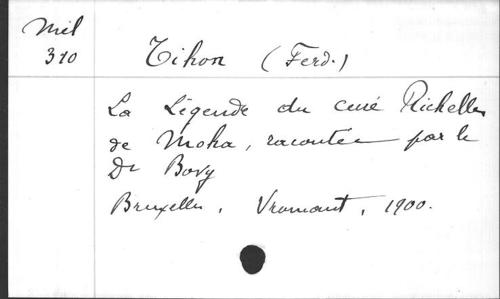 Mél
310
Tihon (Ferd.)
La Légende du curé Rickelle
de Moha, racontée par le
Dr Bovy
Bruxelles, Vromant, 1900.